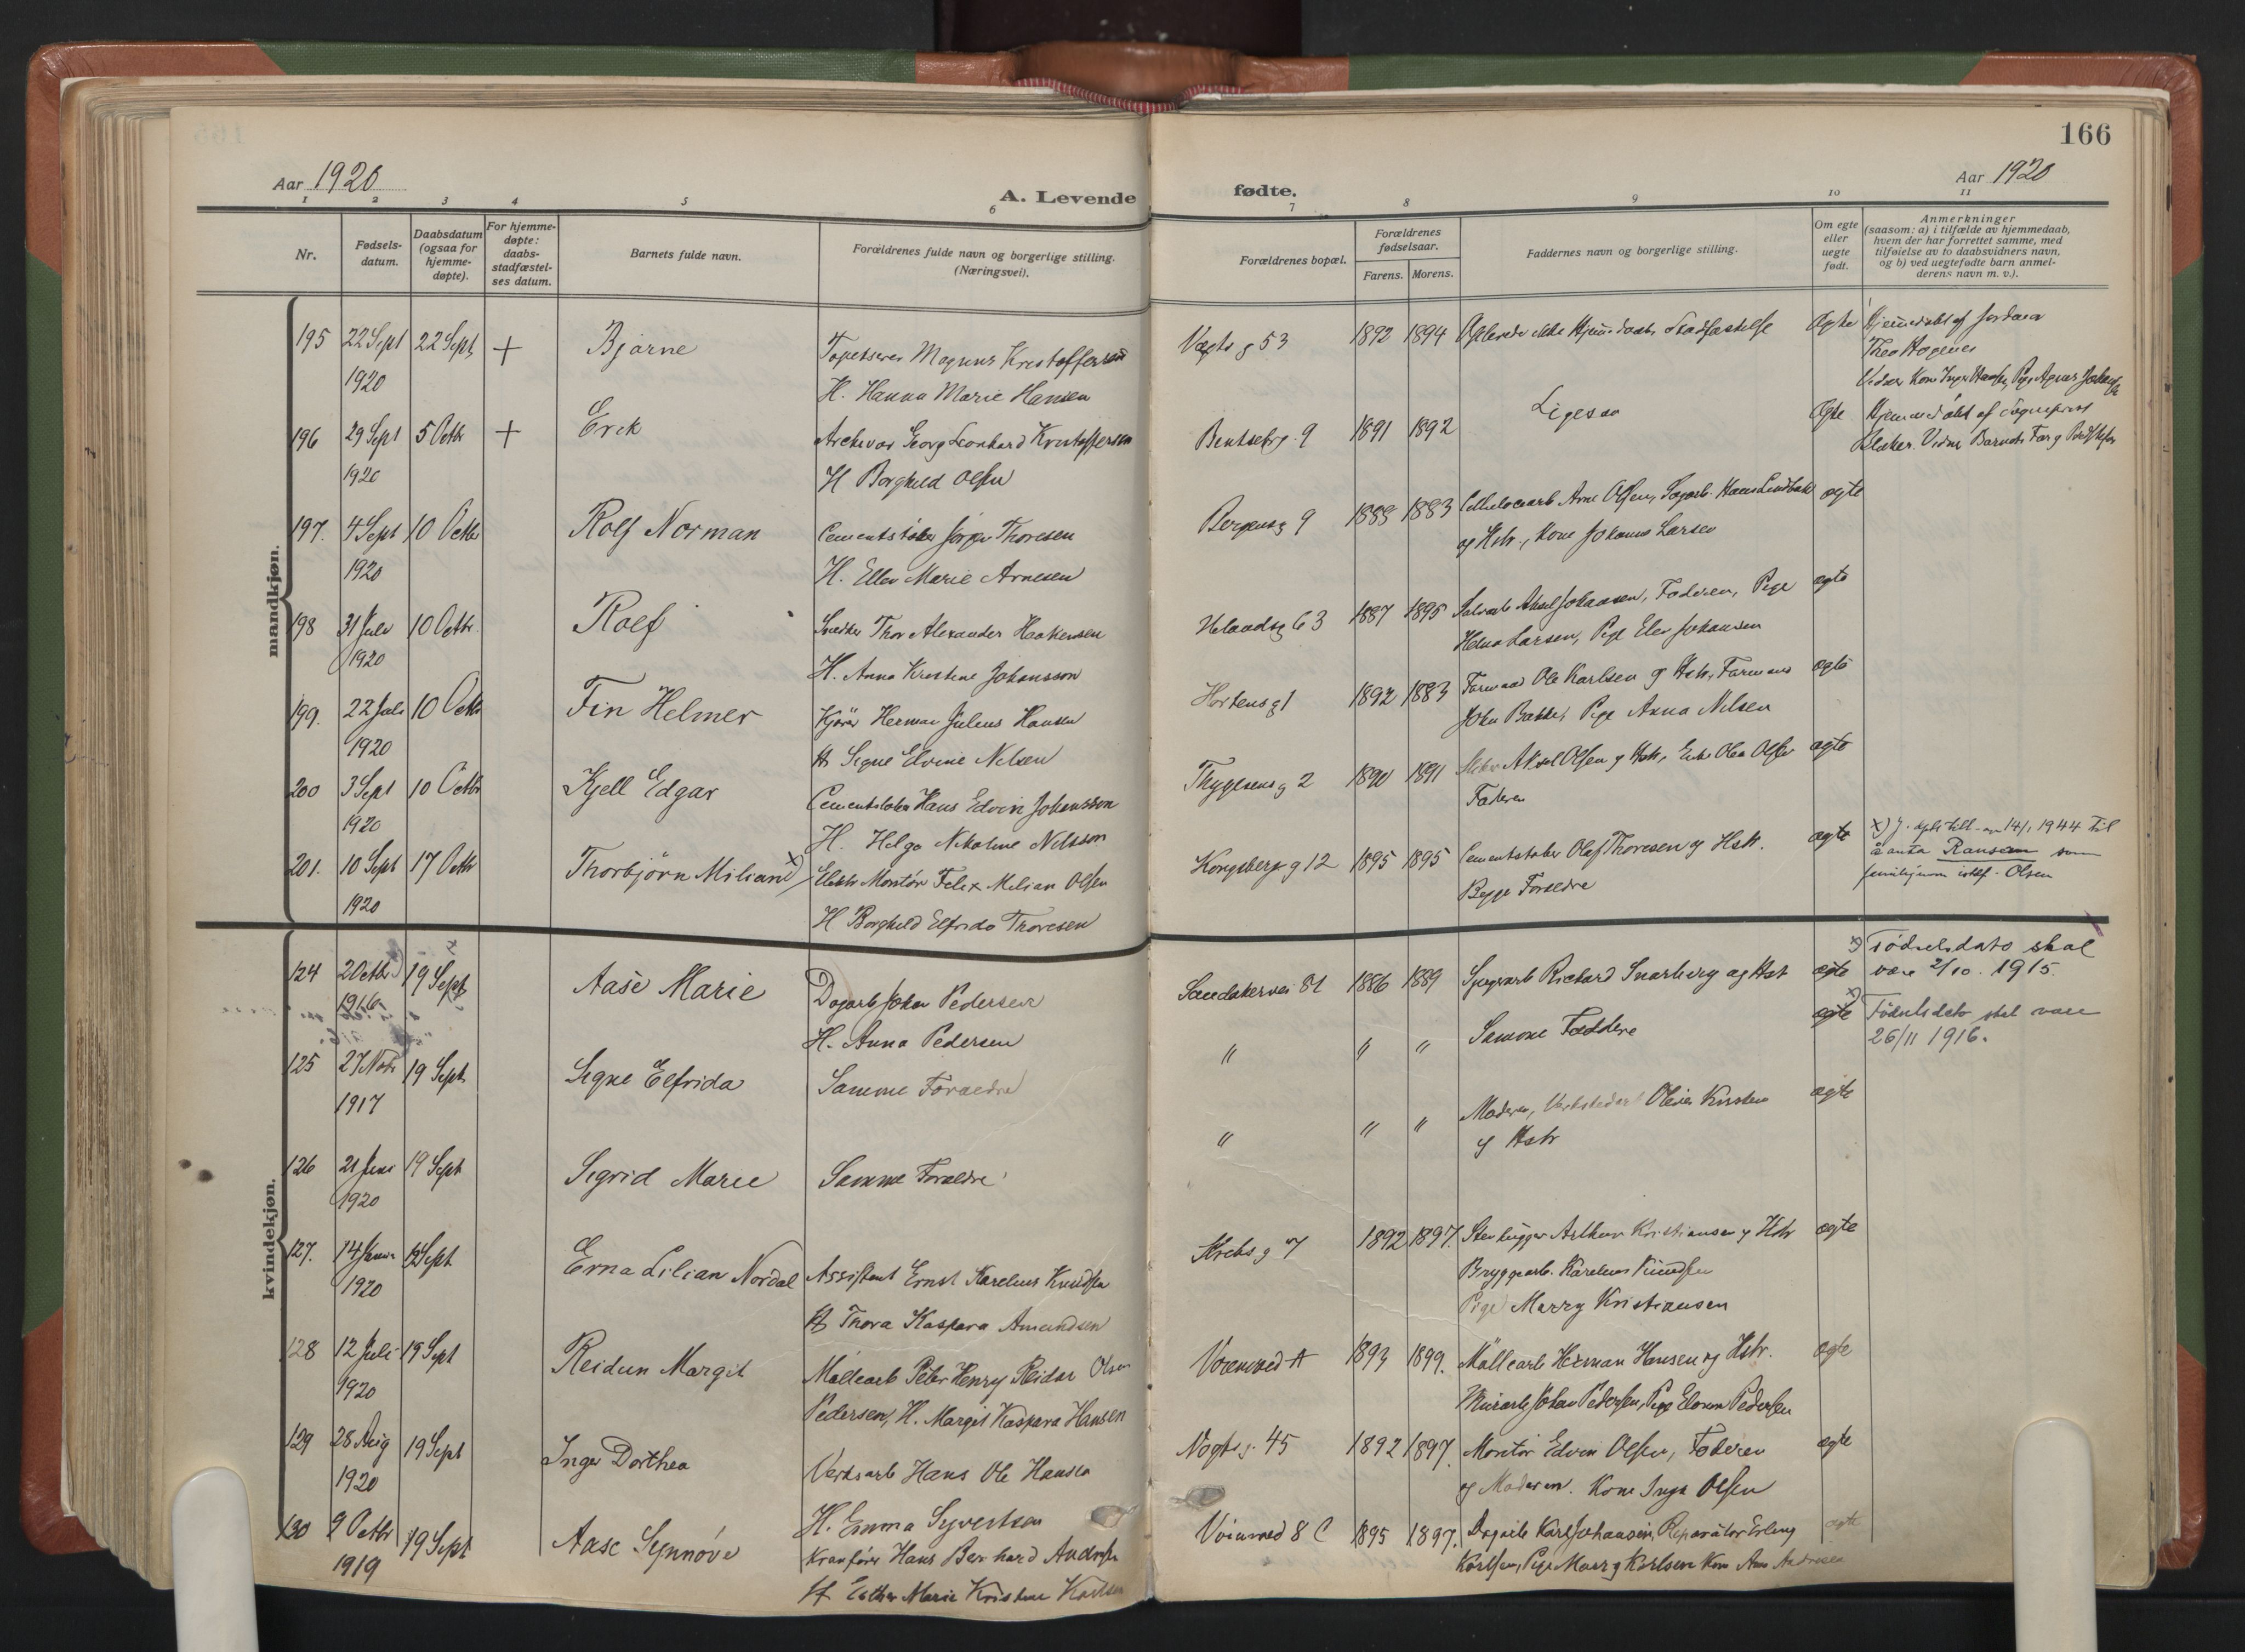 166
Aar 1920
A. Levende
fødte.
Aar 1920
1 2 3 4 5 6 7 8 9 10 11
Nr.
Fødsels-
datum.
Daabsdatum
(ogsaa for
hjemme-
døpte).
For hjemme-
døpte:
daabs-
stadfæstel-
ses datum.
Barnets fulde navn.
Forældrenes fulde navn og borgerlige stilling.
(Næringsvei).
Forældrenes bopæl.
Forældrenes
fødselsaar.
Farens. Morens.
Faddernes navn og borgerlige stilling.
Om egte
eller
uegte
født.
Anmerkninger
(saasom: a) i tilfælde av hjemmedaab,
hvem der har forrettet samme, med
tilføielse av to daabsvidners navn,
og b) ved uegtefødte barn anmel-
derens navn m. v.).
mandkjøn.
195 22 Sept 22 Sept + Bjarne Tapetserer Magnus Kristoffersen Vogts g 53 1892 1894 Oplevede ikke Hjemmedaabs Stadfæstelse Ægte Hjemmedøbt af Jordmor
1920 H. Hanna Marie Hansen Thea Hagenes
196 29 Sept 5 Octbr + Erik Arkivar Georg Leonhard Kristoffersen Bentsebrg. 9 1891 1892 Ligesaa Ægte Hjemmedøbt af Sogneprest
1920 H Borghild Olsen
197. 4 Sept 10 Octbr Rolf Norman Cementstøber Jørgen Thoresen Bergensg 9 1883 Arne Olsen, Hans Lindbæk ægte
1920 H. Ellen Marie Arnesen og Hstr., Kone Johanne Larsen
198 31 Juli 10 Octbr. Rolf Snedker Thor Alexander Haakensen 1887 1895 Johansen, Faderen, Pige ægte
1920 H. Anna Kristine Johansson Larsen, Pige Johansen
199. 22 Juli 10 Octbr Fin Helmer Kjører Herman Julius Hansen Hortensg 1 1892 1883 Formand Ole Karlsen og Hstr, Formand ægte
1920 H Signe Elvine Nilsen John Bakke, Pige Anna Nilsen
200 3 Sept 10 Octbr Kjell Edgar Cementstøber Hans Edvin Johansson Thygesens g 2 1890 1891 Aksel Olsen og Hstr, Olsen ægte
1920 H. Helga Nikoline Nilsson Faderen
201. 10 Sept 17 Octbr Thorbjørn Milian x) Elektr Montør Felix Milian Olsen Kongsberg g 12 1895 1895 Cementstøber Olaf Thoresen og Hstr. ægte x) 1944 til
1920 H Borghild Elfrida Thoresen Begge Forældre å anta Ransem som
familienavn istf. Olsen
kvindekjøn.
124 2 Octbr 19 Sept Aase Marie Dagarb Johan Pedersen Sandakervei 81 1886 1889 Richard Snarberg og Hstr ægte x) Fødselsdato skal
1916 H. Anna Pedersen være 2/10. 1915.
125 27 Nov 19 Sept Signe Elfrida Samme Forældre " " " Samme Faddere ægte x) Fødselsdato skal være
1917 26/11 1916.
126 21 Juni 19 Sept Sigrid Marie Samme Forældre " " " Moderen, ægte
1920 og Hstr
127. 14 19 Sept Erna Lilian Nordal Assistent Ernst Karelius Knudsen Krebs g 7 1892 1897. Stenhugger Arthur Kristiansen og Hstr ægte
1920 H Thora Kaspara Amundsen Bryggearb. Karelius Knudsen
Pige Marry Kristiansen
128 12 Juli 19 Sept Reidun Margit Møllearb Peter Henry Reidar Olsen 1893 1899. Møllearb Herman Hansen og Hstr. ægte
1920 Pedersen, H. Margit Kaspara Hansen Murarb Johan Pedersen, Pige Pedersen
129 28 Aug 19 Sept Inger Dorthea Verksarb Hans Ole Hansen Vogts g. 45 1892 1897. Montør Edvin Olsen, Faderen ægte
1920 H. Emma Syvertsen og Moderen. Kone Inga Olsen
130 9 Octbr 19 Sept Aase Synnøve Kranfører Hans Bernhard Andresen 8 C 1895 1897. Dagarb Karl Johansen, Reparatør Erling ægte
1919 H Esther Marie Kristine Karlsen Karlsen, Pige Marry Karlsen Kone Andresen